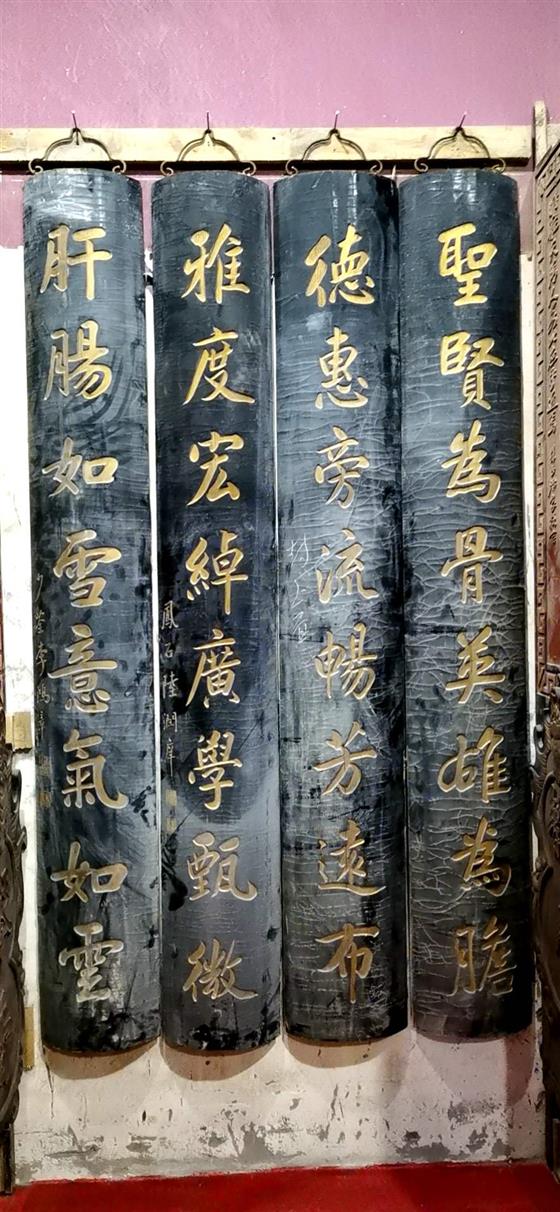 聖賢為骨英雄為膽
德惠旁流暢芳遠布
雅度宏綽廣學甄微
鳳石陸潤庠
肝腸如雪意氣如雲
少荃李鴻章